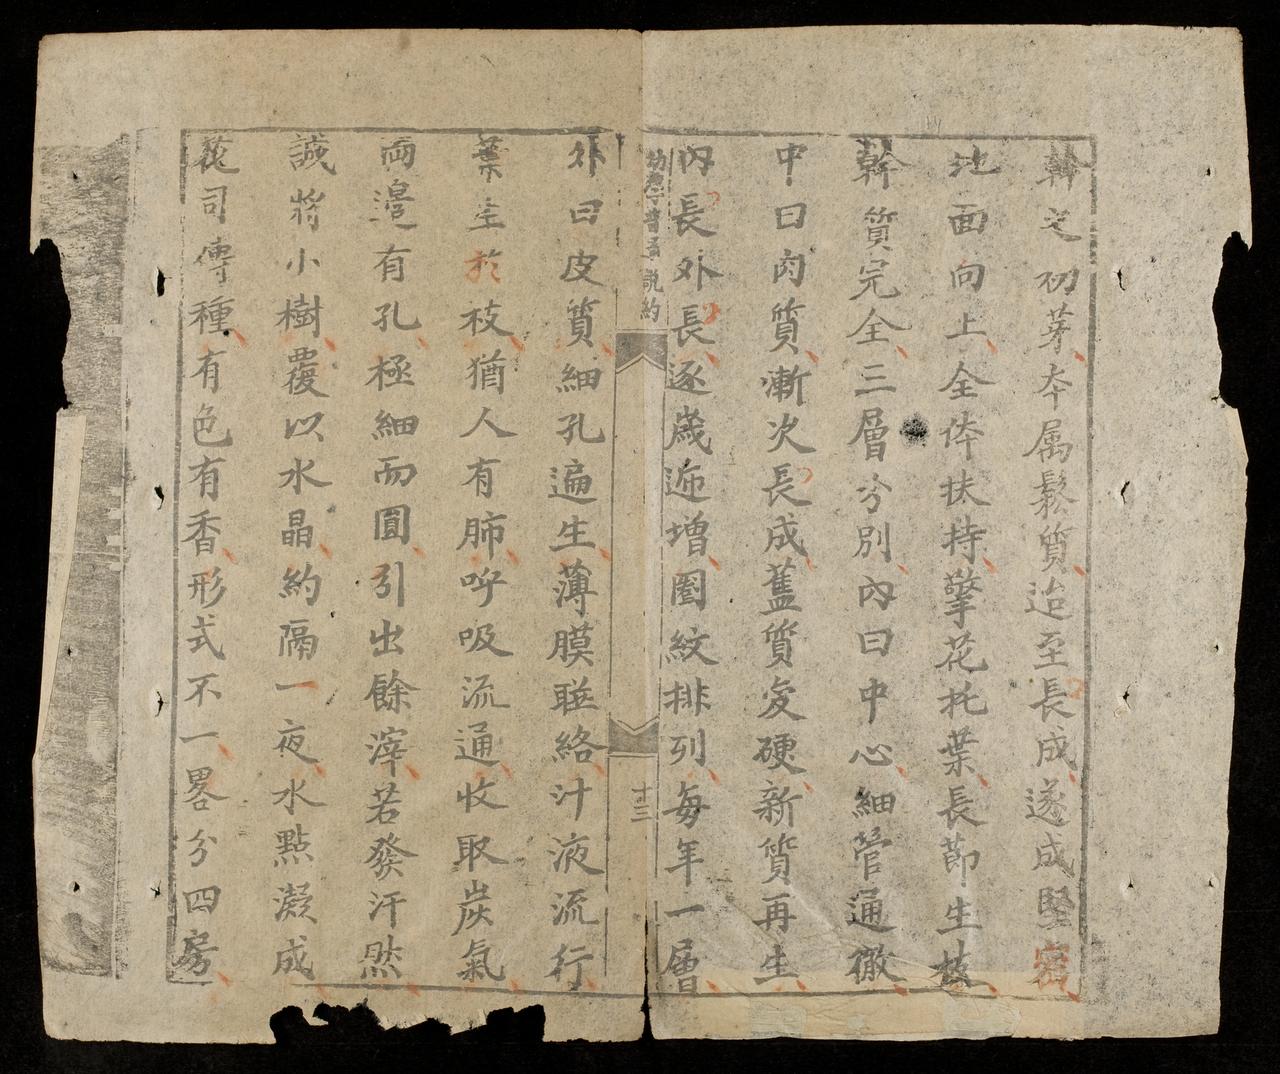 幹之初芽本属鬆質迨至長成遂成堅密
地面向上全体扶持擎花托葉長節生枝
幹質完全三層分別內曰中心細管通徹
中曰肉質漸次長成舊質変硬新質再生
內長外長逐歲迊增圈紋排列每年一層
幼學普通說約
十三
外曰皮質細孔遍生薄膜聮絡汁液流行
葉生於枝猶人有肺呼吸流通收取炭氣
両邉有孔極細而圓引出餘滓若發汗然
誠將小樹覆以水晶約隔一夜水點凝成
花司傳種有色有香形式不一畧分四房